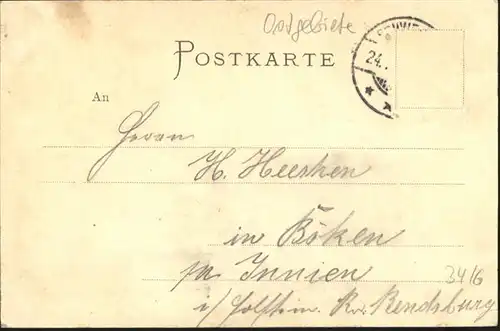 Ostgebiete
POSTKARTE
24.
An
Herrn
H. Heeschen
in Böken
pr Innien
i/Holstein. Krs. Rendsburg
34/6